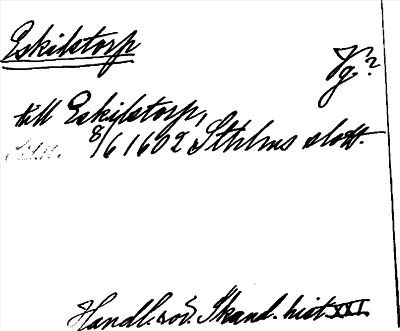 Eskilstorp
Vg.?
till Eskilstorp,
8/6 1602 Sthlms slott.
Handl. rör. Skand. hist. XXI.